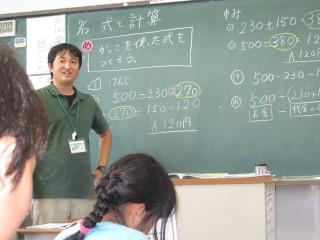 9/6 式と計算
め かっこを使った式を
つくろう。
けんじ
500-230=270
270-150=120
A 120円
ゆみ
① 230+150=380
② 500-380=
500-230-1
500-(230+1
お金 代金の